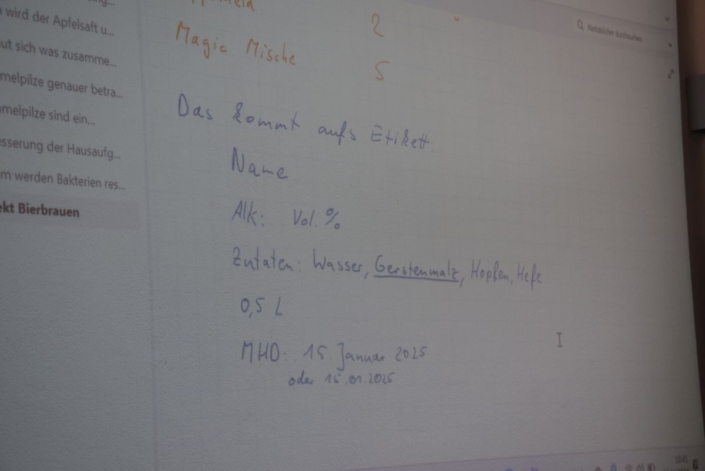 wird der Apfelsaft u...
ut sich was zusamme...
melpilze genauer betra...
melpilze sind ein...
sserung der Hausaufg...
m werden Bakterien res...
ekt Bierbrauen
Notizbücher durchsuchen
2
Magic Mische 5
Das kommt aufs Etikett
Name
Alk: Vol. %
Zutaten: Wasser, Gerstenmalz, Hopfen, Hefe
0,5 L
MHD: 15 Januar 2025
oder 15.01.2025